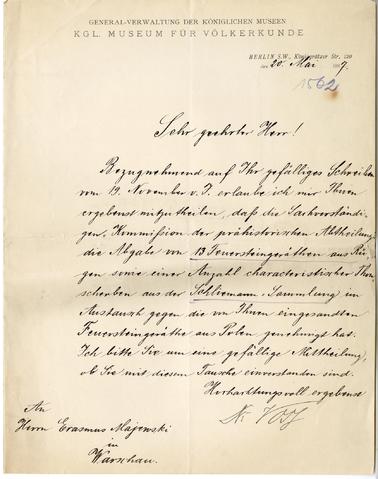 GENERAL-VERWALTUNG DER KÖNIGLICHEN MUSEEN
KGL. MUSEUM FÜR VÖLKERKUNDE
BERLIN S.W., Königgrätzer Str. 120
den 20. Mai 1897.
1562
Sehr geehrter Herr!
Bezugnehmend auf Ihr gefälliges Schreiben
vom 19. November v. J. erlaube ich mir Ihnen
ergebenst mitzutheilen, daß die Sachverständi-
gen-Kommission der prähistorischen Abtheilung
die Abgabe von 13 Feuersteingeräthen aus Rü-
gen sowie einer Anzahl characteristischer Thon-
scherben aus der Schliemann-Sammlung im
Austausch gegen die von Ihnen eingesandten
Feuersteingeräthe aus Polen genehmigt hat.
Ich bitte Sie um eine gefällige Mittheilung,
ob Sie mit diesem Tausche einverstanden sind.
Hochachtungsvoll ergebenst
Voß
An
Herrn Erasmus Majewski
in
Warschau.